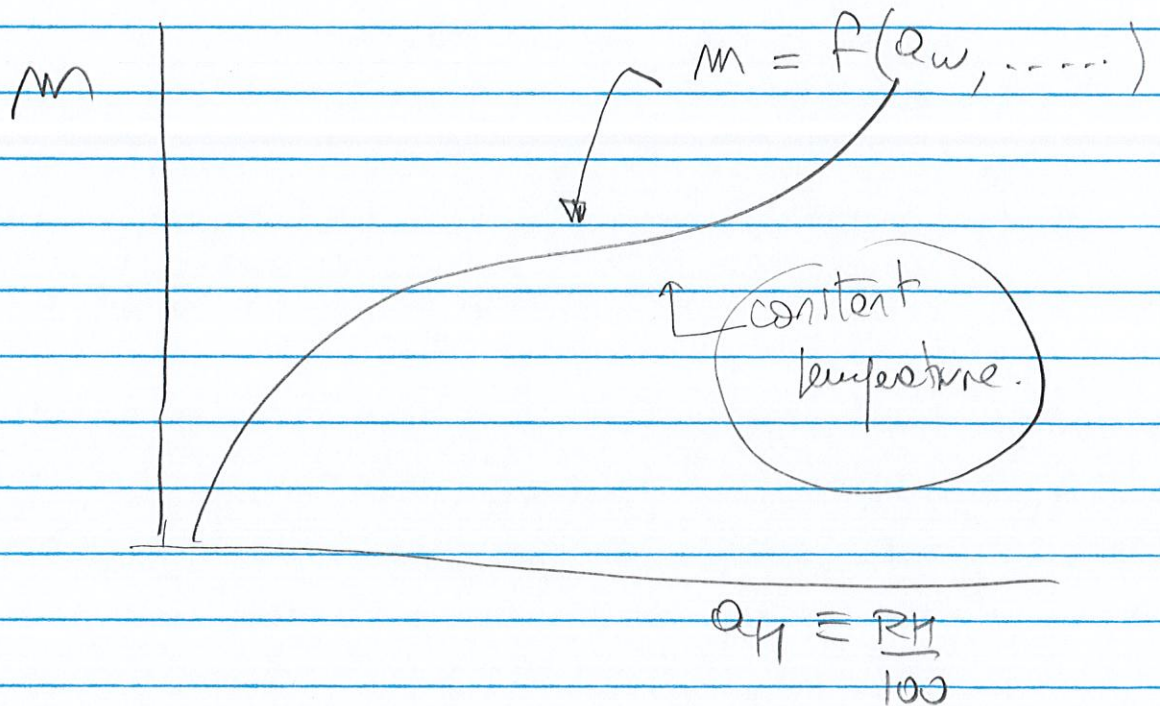 m = f(aw, .....)
m
constant
temperature.
aH ≡ RH
100